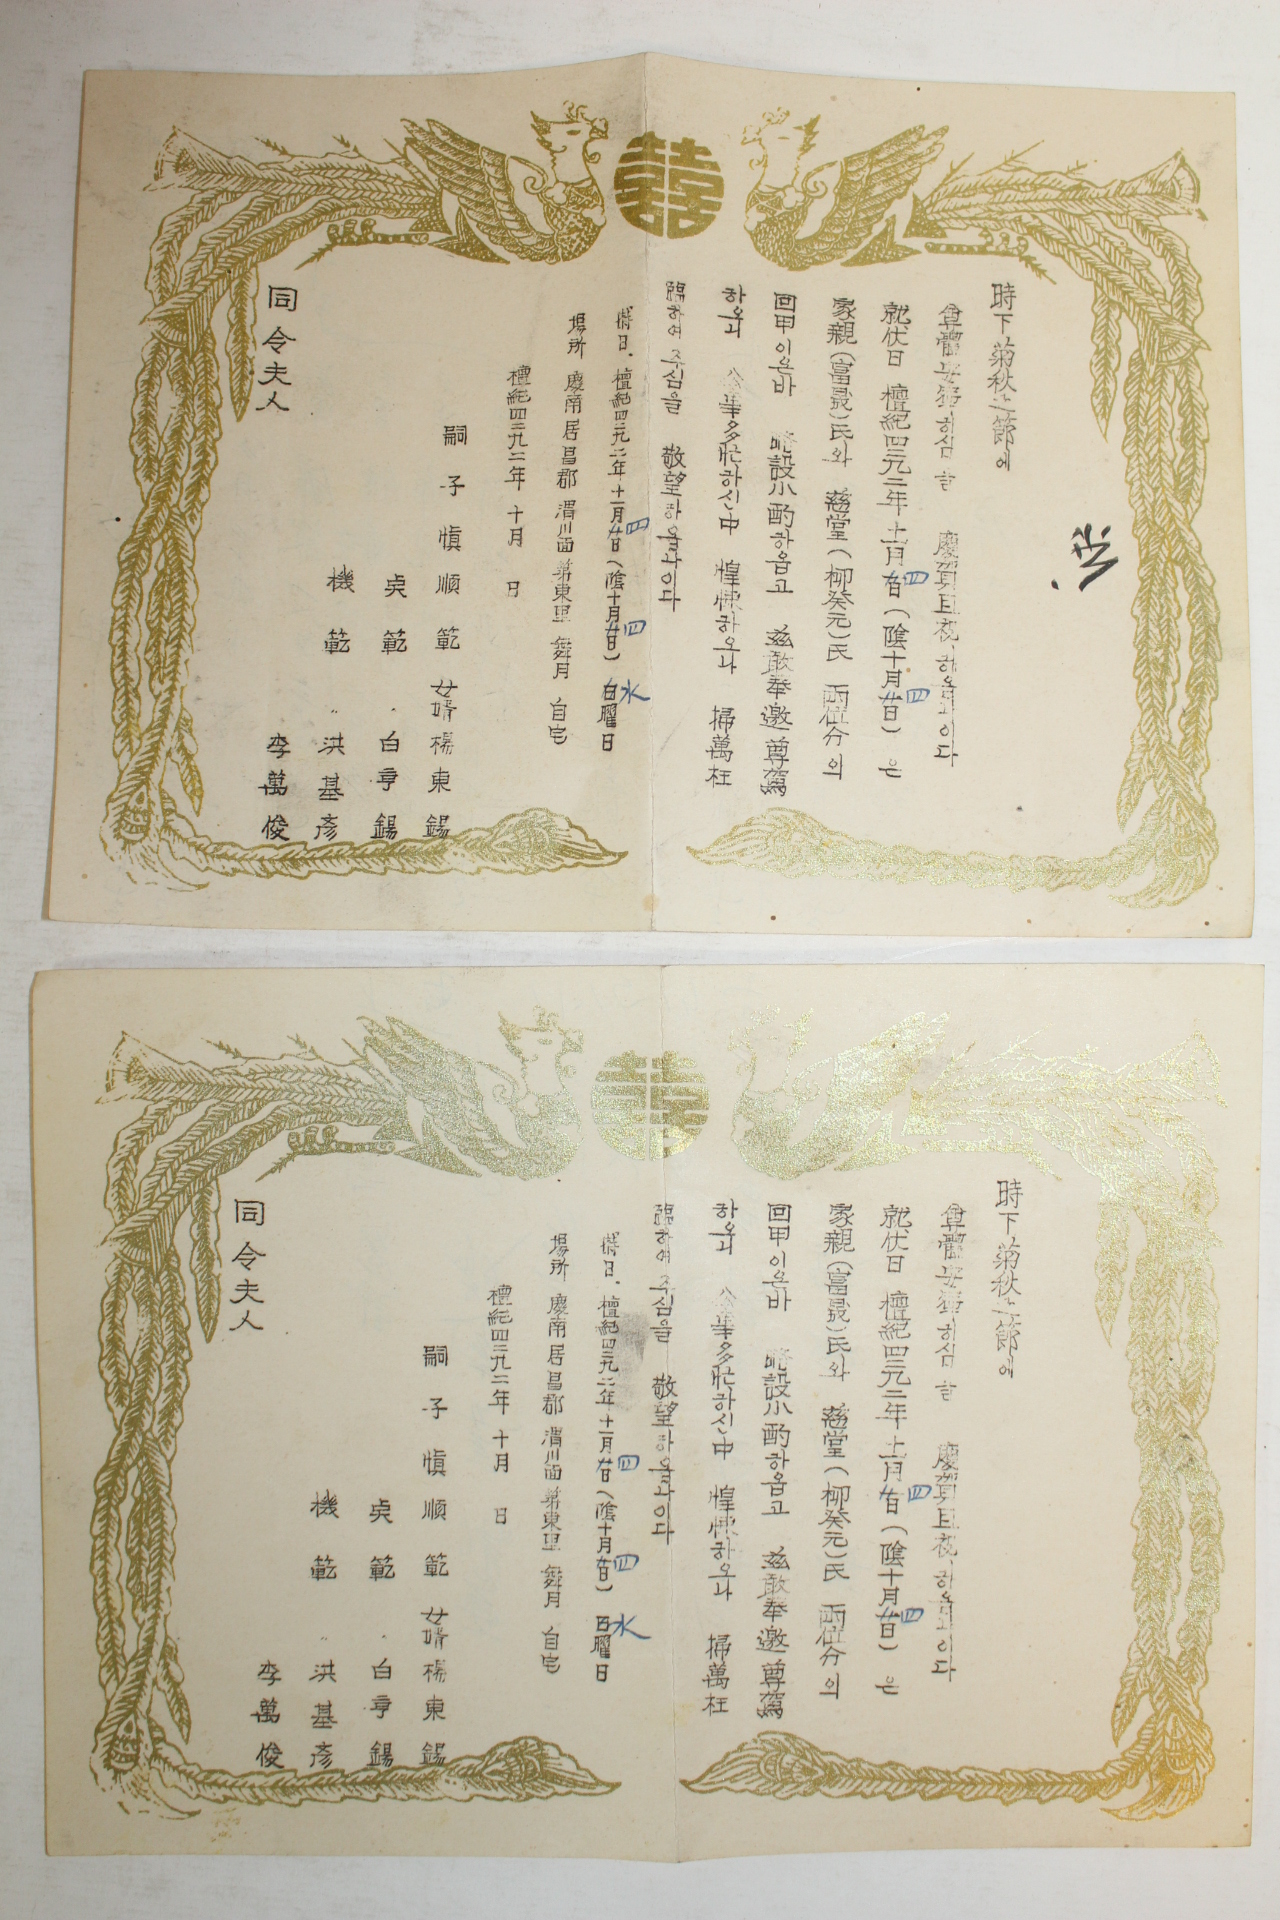 囍
時下菊秋之節에
尊體安 하심을 慶賀且祝하옵나이다
就伏日 檀紀四二九二年 十一月 四日(陰十月 四日)은
家親(富晟)氏와 慈堂(柳癸元)氏 兩位分의
回甲이온바 略設小酌하옵고 玆敢奉邀 尊駕
하오니 公事多忙하신中 惶悚하오나 掃萬枉
臨하여 주심을 敬望하옵나이다
日. 檀紀四二九二年十一月 四日(陰十月 四日) 水曜日
場所 慶南居昌郡 渭川面 東里 舞月 自宅
檀紀四二九二年 十月 日
嗣子 愼順範 女婿 楊東錫
奌範 〃 白亨錫
機範 〃 洪基彦
李萬俊
同令夫人
囍
時下菊秋之節에
尊體安 하심을 慶賀且祝하옵나이다
就伏日 檀紀四二九二年 十一月 四日(陰十月 四日)은
家親(富晟)氏와 慈堂(柳癸元)氏 兩位分의
回甲이온바 略設小酌하옵고 玆敢奉邀 尊駕
하오니 公事多忙하신中 惶悚하오나 掃萬枉
臨하여 주심을 敬望하옵나이다
日. 檀紀四二九二年十一月 四日(陰十月 四日) 水曜日
場所 慶南居昌郡 渭川面 東里 舞月 自宅
檀紀四二九二年 十月 日
嗣子 愼順範 女婿 楊東錫
奌範 〃 白亨錫
機範 〃 洪基彦
李萬俊
同令夫人